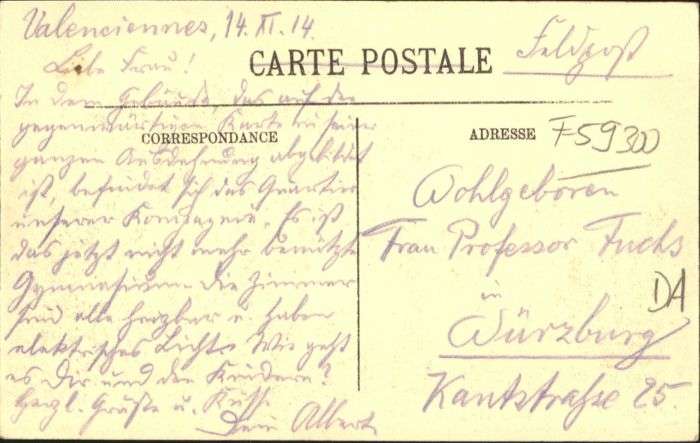 Valenciennes, 14. XI. 14.
Liebe Frau!
In dem Gebäude, das auf der
gegenwärtigen Karte in seiner
ganzen Ausdehnung abgebildet
ist, befindet sich das Quartier
unserer Kompagnie. Es ist
das jetzt nicht mehr benützte
Gymnasium. Die Zimmer
sind alle heizbar u. haben
elektrisches Licht. Wie geht
es Dir und den Kindern?
Herzl. Grüße u. Kuss
Dein Albert
CARTE POSTALE
Feldpost
CORRESPONDANCE
ADRESSE
F59300
Wohlgeboren
Frau Professor Fuchs
in
DA
Würzburg
Kantstraße 25.